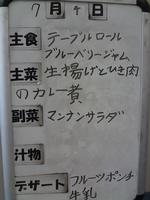 7月4日
主食 テーブルロール
ブルーベリージャム
主菜 生揚げとひき肉
のカレー煮
副菜 マンナンサラダ
汁物
デザート フルーツポンチ
牛乳